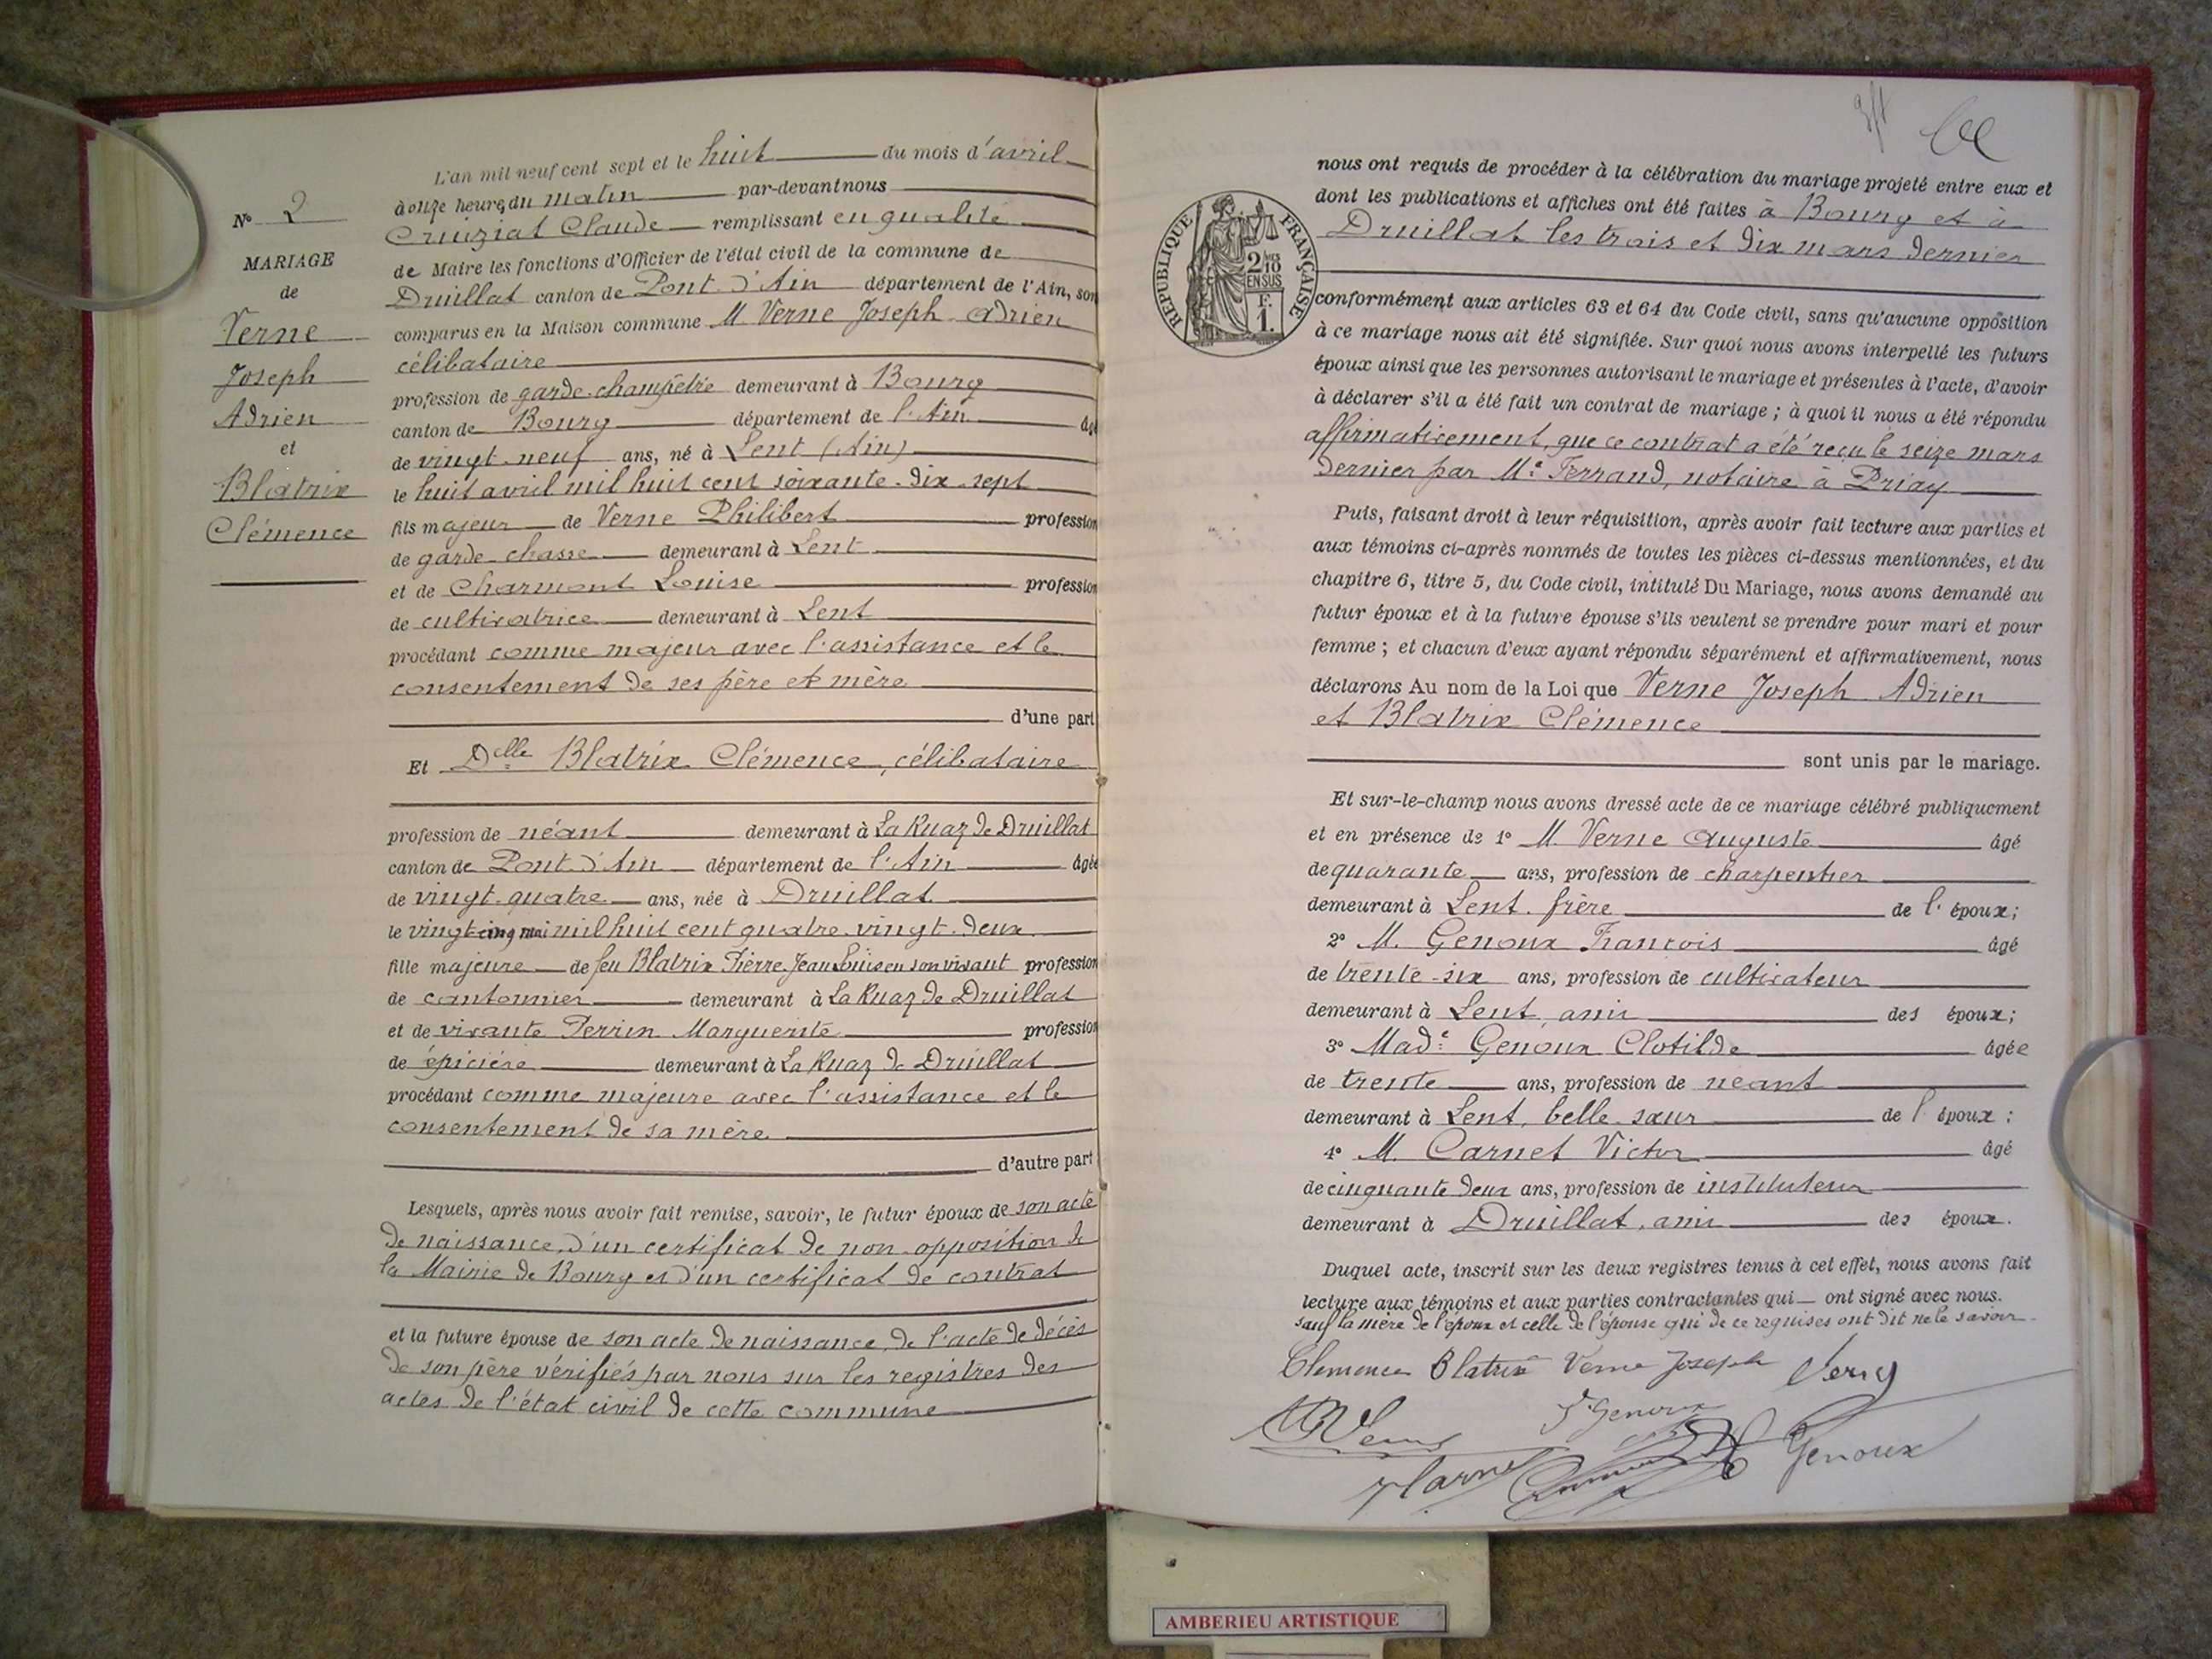 L'an mil neuf cent sept et le huit du mois d'avril
à onze heures du matin par-devant nous
Cruiziat Claude remplissant en qualité
de Maire les fonctions d'Officier de l'état civil de la commune de
Druillat canton de Pont d'Ain département de l'Ain, son
comparus en la Maison commune M Verne Joseph Adrien
célibataire
profession de garde-champêtre demeurant à Bourg
canton de Bourg département de l'Ain âgé
de vingt-neuf ans, né à Lent (Ain)
le huit avril mil huit cent soixante-dix-sept
fils majeur de Verne Philibert profession
de garde-chasse demeurant à Lent
et de Charmont Louise profession
de cultivatrice demeurant à Lent
procédant comme majeur avec l'assistance et le
consentement de ses père et mère
d'une part
Et Delle Blatrix Clémence, célibataire
profession de néant demeurant à La Ruaz de Druillat
canton de Pont d'Ain département de l'Ain âgée
de vingt-quatre ans, née à Druillat
le vingt-cinq mai mil huit cent quatre-vingt-deux
fille majeure de feu Blatrix Pierre Jean Louis en son vivant profession
de cantonnier demeurant à La Ruaz de Druillat
et de vivante Perrin Marguerite profession
de épicière demeurant à La Ruaz de Druillat
procédant comme majeure avec l'assistance et le
consentement de sa mère
d'autre part
Lesquels, après nous avoir fait remise, savoir, le futur époux de son acte
de naissance, d'un certificat de non-opposition de
la Mairie de Bourg et d'un certificat de contrat
et la future épouse de son acte de naissance, de l'acte de décès
de son père vérifiés par nous sur les registres des
actes de l'état civil de cette commune
N° 2
MARIAGE
de
Verne
Joseph
Adrien
et
Blatrix
Clémence
RÉPUBLIQUE FRANÇAISE
2/10
EN SUS
F.
1.
nous ont requis de procéder à la célébration du mariage projeté entre eux et
dont les publications et affiches ont été faites à Bourg et à
Druillat les trois et dix mars dernier
conformément aux articles 63 et 64 du Code civil, sans qu'aucune opposition
à ce mariage nous ait été signifiée. Sur quoi nous avons interpellé les futurs
époux ainsi que les personnes autorisant le mariage et présentes à l'acte, d'avoir
à déclarer s'il a été fait un contrat de mariage ; à quoi il nous a été répondu
affirmativement, que ce contrat a été reçu le seize mars
dernier par Me Ferrand, notaire à Priay
Puis, faisant droit à leur réquisition, après avoir fait lecture aux parties et
aux témoins ci-après nommés de toutes les pièces ci-dessus mentionnées, et du
chapitre 6, titre 5, du Code civil, intitulé Du Mariage, nous avons demandé au
futur époux et à la future épouse s'ils veulent se prendre pour mari et pour
femme ; et chacun d'eux ayant répondu séparément et affirmativement, nous
déclarons Au nom de la Loi que Verne Joseph Adrien
et Blatrix Clémence
sont unis par le mariage.
Et sur-le-champ nous avons dressé acte de ce mariage célébré publiquement
et en présence de 1° M. Verne Auguste âgé
de quarante ans, profession de charpentier
demeurant à Lent, frère de l'époux ;
2° M. Genoux François âgé
de trente-six ans, profession de cultivateur
demeurant à Lent, ami des époux ;
3° Made Genoux Clotilde âgée
de trente ans, profession de néant
demeurant à Lent, belle-sœur de l'époux ;
4° M. Carnet Victor âgé
de cinquante deux ans, profession de instituteur
demeurant à Druillat, ami des époux.
Duquel acte, inscrit sur les deux registres tenus à cet effet, nous avons fait
lecture aux témoins et aux parties contractantes qui ont signé avec nous.
sauf la mère de l'époux et celle de l'épouse qui de ce requises ont dit ne le savoir.
Clemence Blatrix Verne Joseph
F. Genoux
Genoux
AMBERIEU ARTISTIQUE